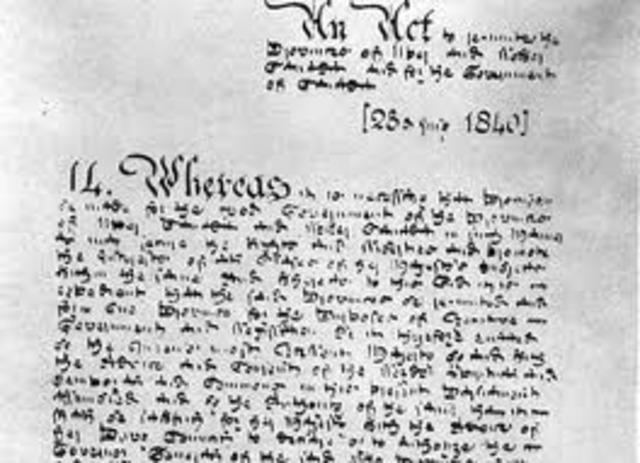 An Act to re-unite the
Provinces of Upper and Lower
Canada and for the Government
of Canada
[23d July 1840]
Whereas it is necessary that Provision
be made for the good Government of the Provinces
of Upper Canada and Lower Canada in such Manner
as may secure the Rights and Liberties and promote
the Interests of all Classes of Her Majesty's Subjects
within the same And whereas to this End it is
expedient that the said Provinces be re-united and
form One Province for the Purposes of Executive
Government and Legislation Be it therefore enacted
by the Queen's most Excellent Majesty by and with
the Advice and Consent of the Lords Spiritual and
Temporal and Commons in this present Parliament
assembled and by the Authority of the same That
it shall be lawful for Her Majesty with the Advice of
Her Privy Council to declare or to authorize the
Governor General of the said